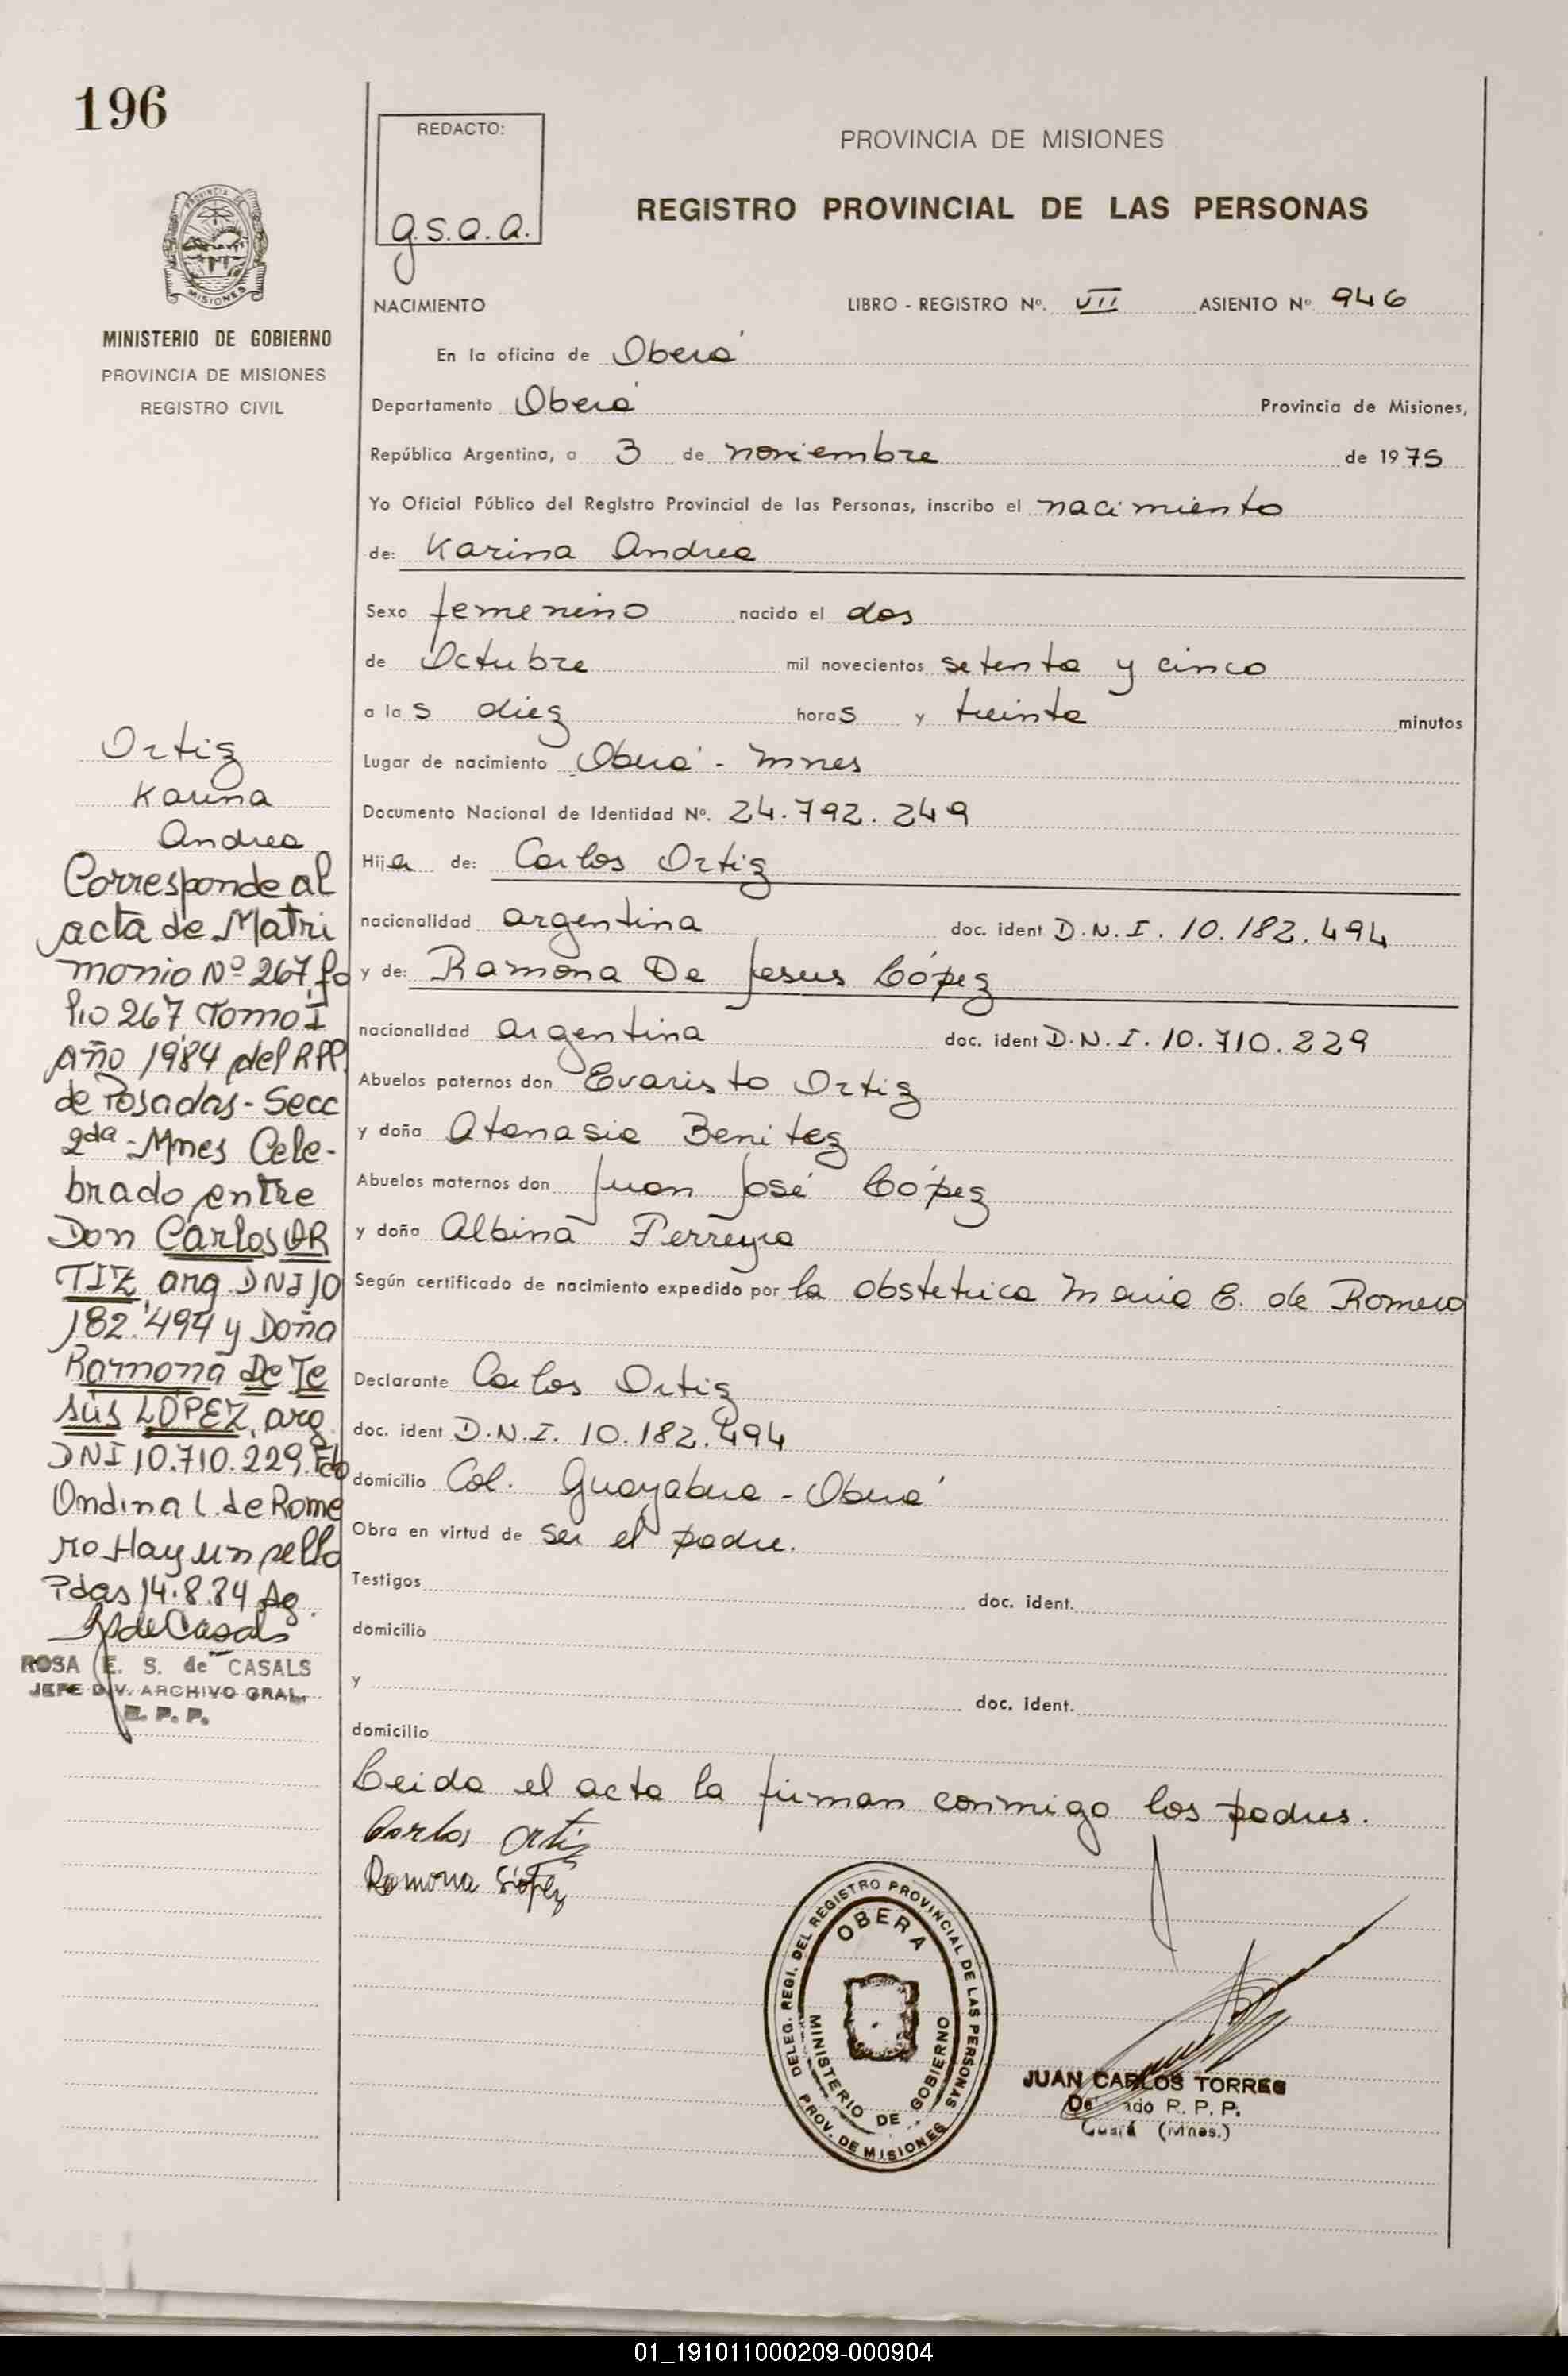 196
REDACTO:
g.s.a.a.
PROVINCIA DE MISIONES
REGISTRO PROVINCIAL DE LAS PERSONAS
PROVINCIA DE
MISIONES
MINISTERIO DE GOBIERNO
PROVINCIA DE MISIONES
REGISTRO CIVIL
NACIMIENTO LIBRO - REGISTRO Nº. VII ASIENTO Nº 946
En la oficina de Oberá
Departamento Oberá Provincia de Misiones,
República Argentina, a 3 de noviembre de 1975
Yo Oficial Público del Registro Provincial de las Personas, inscribo el nacimiento
de: Karina Andrea
Sexo femenino nacido el dos
de Octubre mil novecientos setenta y cinco
a las diez horas y treinta minutos
Lugar de nacimiento Oberá - Mnes
Documento Nacional de Identidad Nº. 24.792.249
Hija de: Carlos Ortiz
nacionalidad argentina doc. ident D.N.I. 10.182.494
y de: Ramona De Jesus López
nacionalidad argentina doc. ident D.N.I. 10.710.229
Abuelos paternos don Evaristo Ortiz
y doña Atanasia Benitez
Abuelos maternos don Juan José López
y doña Albina Ferreyra
Según certificado de nacimiento expedido por la obstetrica Maria E. de Romero
Declarante Carlos Ortiz
doc. ident D.N.I. 10.182.494
domicilio Col. Guayabera - Oberá
Obra en virtud de ser el padre.
Testigos doc. ident.
domicilio
y doc. ident.
domicilio
Leida el acta la firman conmigo los padres.
Carlos Ortiz
Ramona López
Ortiz
Karina
Andrea
Corresponde al
acta de Matri
monio Nº 267, fo
lio 267 Tomo I
Año 1984 del RPP.
de Posadas - Secc
2da - Mnes Cele-
brado entre
Don Carlos OR
TIZ, arg. DNI 10
182.494 y Doña
Ramona De Je
sús LÓPEZ, arg.
DNI 10.710.229. Fdo
Ondina L. de Rome
ro Hay un sello
Pdas 14.8.84 Ag.
de Casals
ROSA E. S. de CASALS
JEFE DIV. ARCHIVO GRAL.
R. P. P.
DELEG. REGI. DEL REGISTRO PROVINCIAL DE LAS PERSONAS
OBERA
MINISTERIO DE GOBIERNO
PROV. DE MISIONES
JUAN CARLOS TORRES
R. P. P.
(Mnes.)
01_191011000209-000904